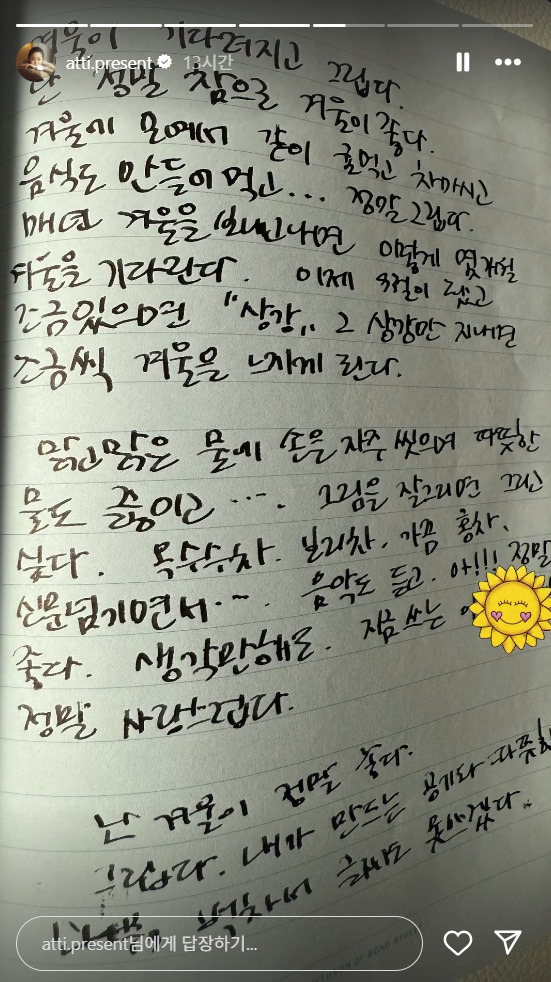 겨울이 기다려지고 그립다.
atti.present 13시간
난 정말 참으로 겨울이 좋다.
겨울에 모여서 같이 귤먹고 차마시고
음식도 만들어 먹고... 정말 그립다.
매년 겨울을 보내고나면 이렇게 몇개월
겨울을 기다린다. 이제 9월이 됐고
조금있으면 "상강" 그 상강만 지내면
조금씩 겨울을 느끼게 된다.
맑고맑은 물에 손을 자주 씻으며 따뜻한
물도 끓이고 .... 그림을 잘그리면 그리고
싶다. 옥수수차. 보리차. 가끔 홍차.
신문넘기면서... 음악도 듣고. 아!!! 정말
좋다. 생각만해도. 지금 쓰는
정말 사랑스럽다.
난 겨울이 정말 좋다.
그립다. 내가 만드는 공기와 따뜻함
벅차서 글씨도 못쓰겠다.
atti.present님에게 답장하기...